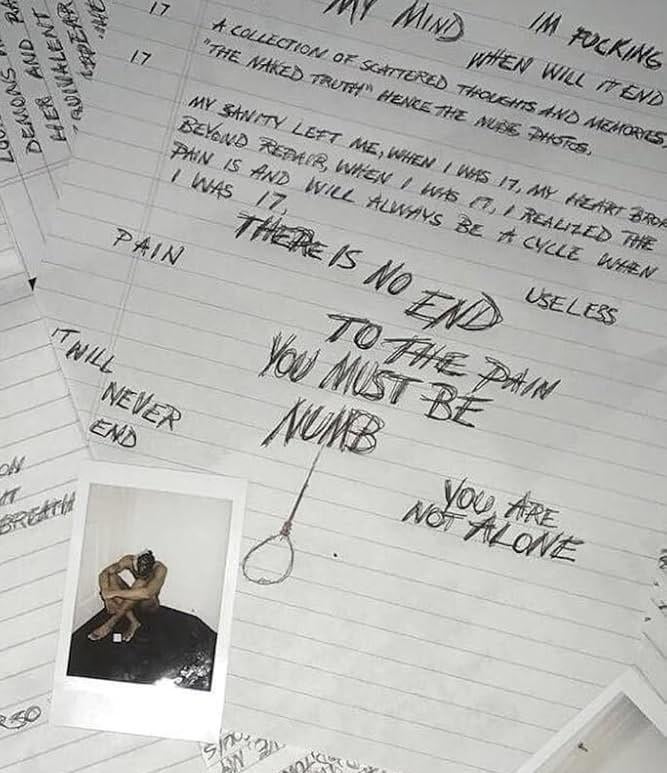 17
MY MIND
IM FUCKING
17
WHEN WILL IT END
A COLLECTION OF SCATTERED THOUGHTS AND MEMORIES,
"THE NAKED TRUTH" HENCE THE NUDE PHOTOS.
MY SANITY LEFT ME, WHEN I WAS 17, MY HEART BROK
BEYOND REPAIR, WHEN I WAS 17, I REALIZED THE
PAIN IS AND WILL ALWAYS BE A CYCLE WHEN
I WAS 17,
THERE IS NO END
TO THE PAIN
YOU MUST BE
NUMB
PAIN
USELESS
IT WILL
NEVER
END
YOU ARE
NOT ALONE
DEMONS AND
HER AND
EQUIVALENT
BREATH